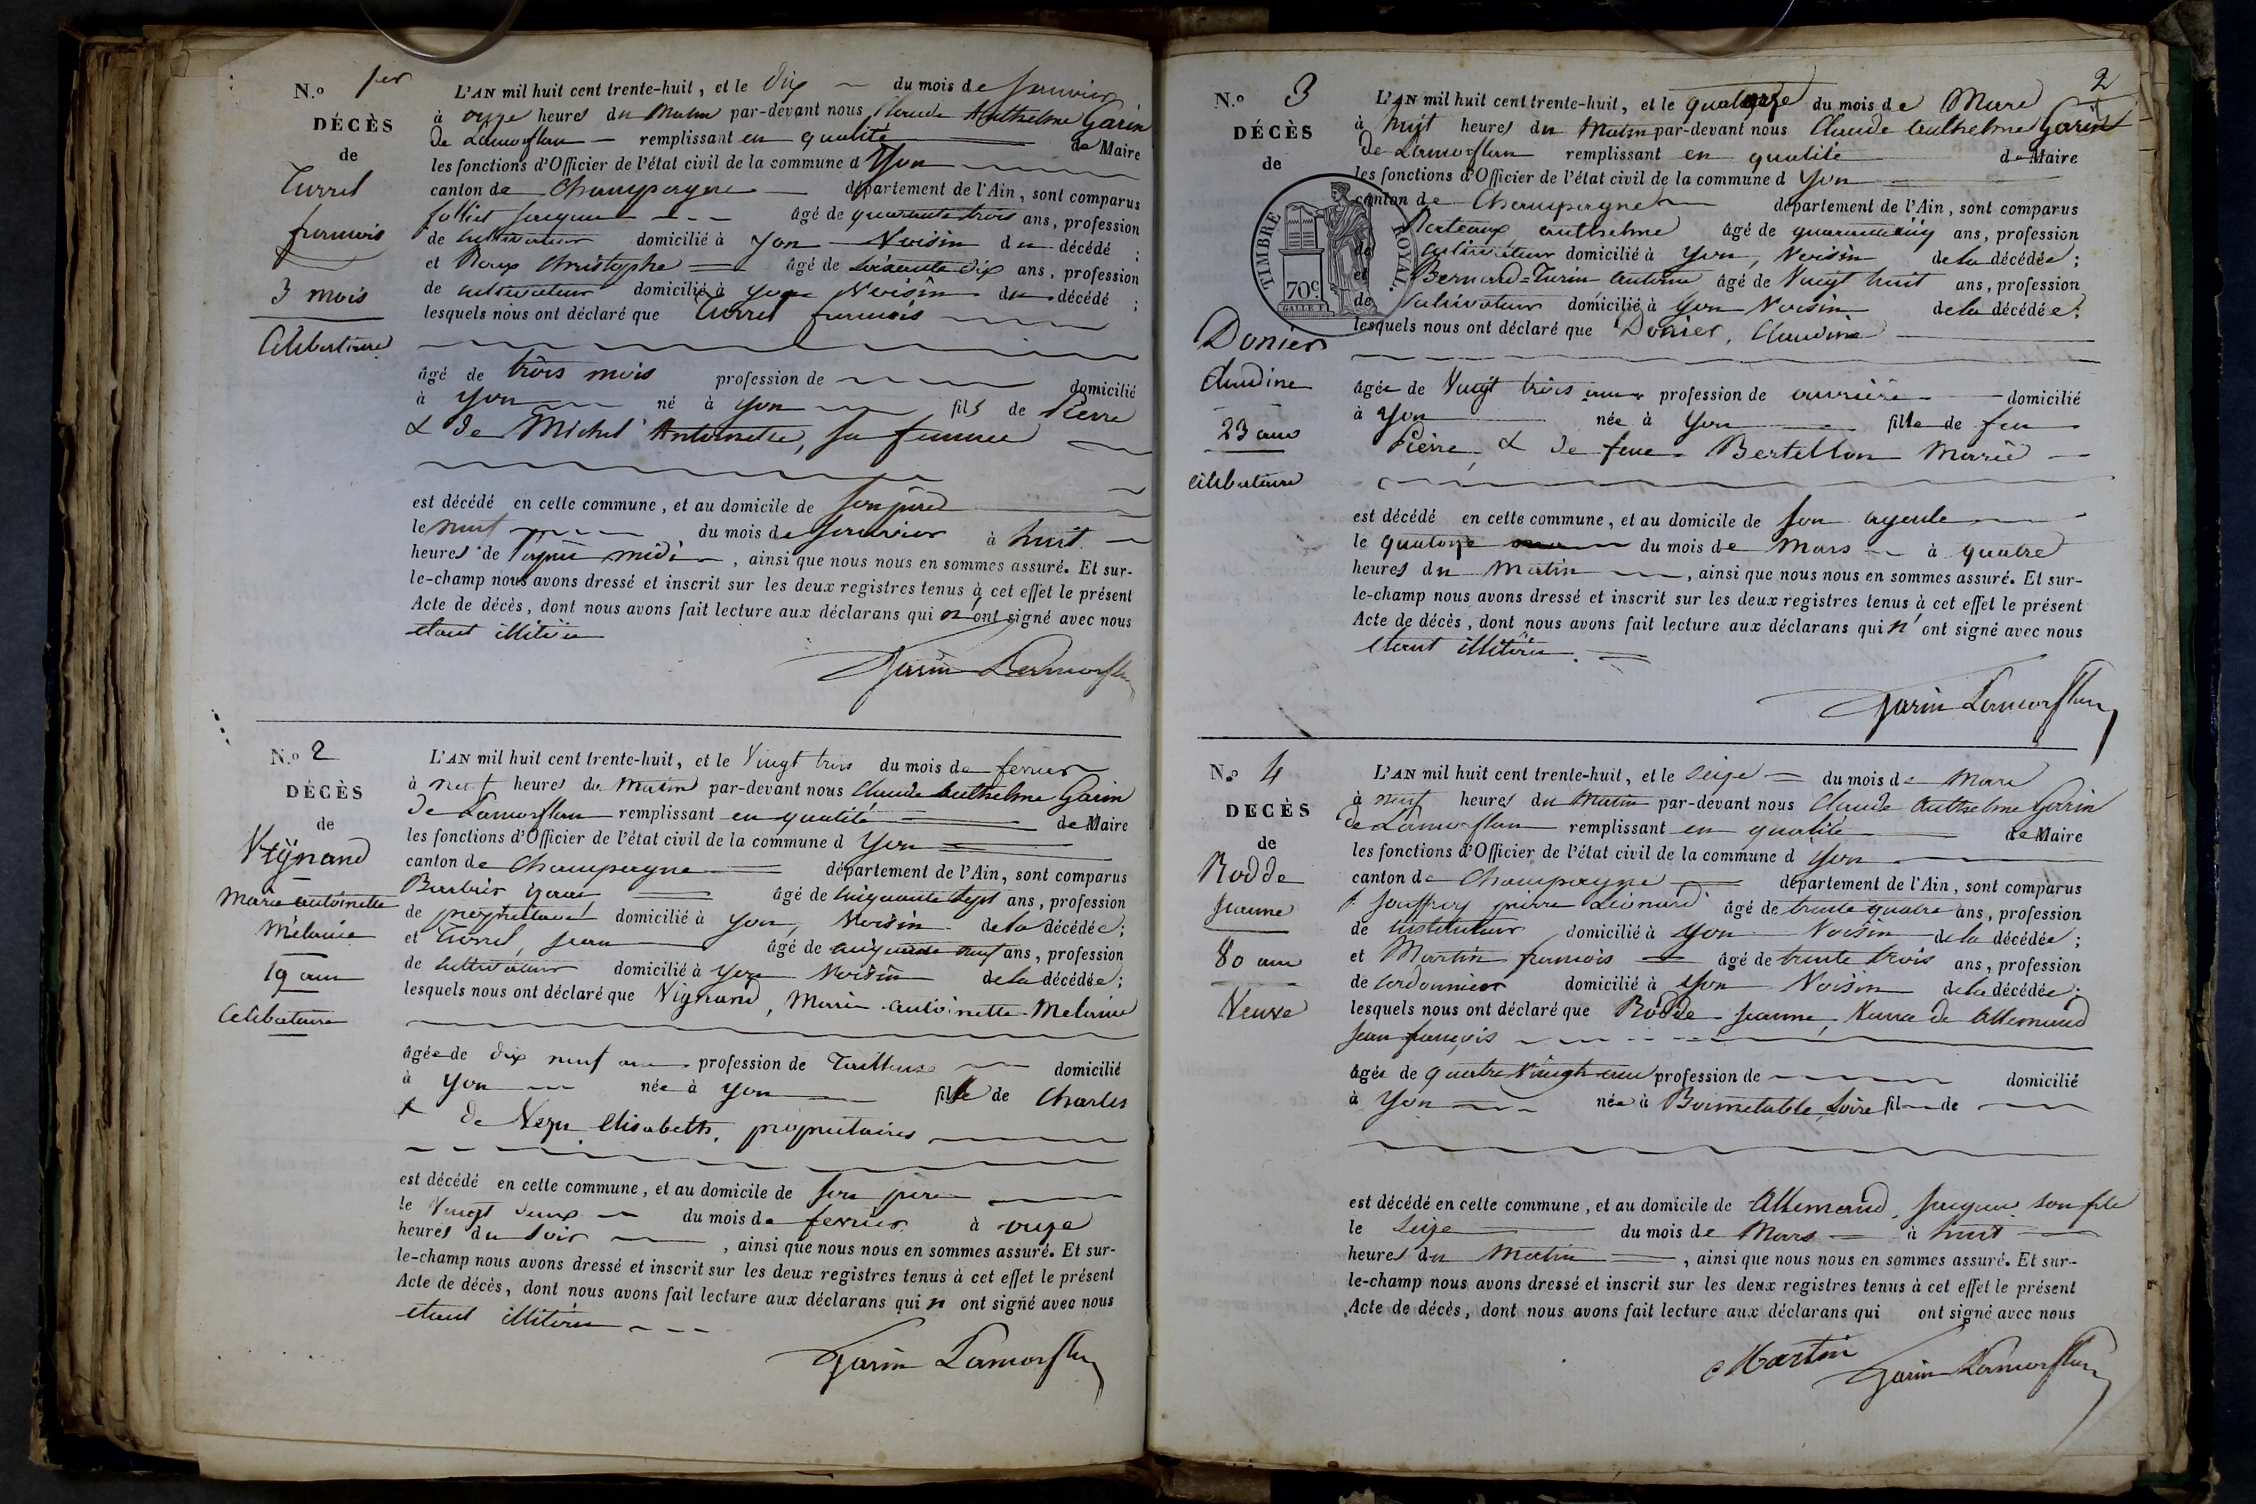 N.º 1er
DÉCÈS
de
Turrel
francois
3 mois
Célibataire
L'AN mil huit cent trente-huit, et le dix du mois de Janvier
à onze heures du Matin par-devant nous Claude Anthelme Garin
de Lamorflan remplissant en qualité de Maire
les fonctions d'Officier de l'état civil de la commune d Yon
canton de Champagne département de l'Ain, sont comparus
folliet Jacques âgé de quarante trois ans, profession
de cultivateur domicilié à Yon Voisin du décédé ;
et Roux Christophe âgé de soixante dix ans, profession
de cultivateur domicilié à Yon Voisin du décédé ;
lesquels nous ont déclaré que Turrel francois
âgé de trois mois profession de domicilié
à Yon né à Yon fils de Pierre
& de Michel Antoinette, sa femme
est décédé en cette commune, et au domicile de son père
le neuf du mois de Janvier à huit
heures de l'après midi, ainsi que nous nous en sommes assuré. Et sur-
le-champ nous avons dressé et inscrit sur les deux registres tenus à cet effet le présent
Acte de décès, dont nous avons fait lecture aux déclarans qui n'ont signé avec nous
étant illitérés
Garin Lamorflan
N.º 2
DÉCÈS
de
Vignand
Marie antoinette
Mélanie
19 ans
Célibataire
L'AN mil huit cent trente-huit, et le Vingt trois du mois de fevrier
à neuf heures du Matin par-devant nous Claude Anthelme Garin
de Lamorflan remplissant en qualité de Maire
les fonctions d'Officier de l'état civil de la commune d Yon
canton de Champagne département de l'Ain, sont comparus
Barbier âgé de cinquante sept ans, profession
de propriétaire domicilié à Yon, Voisin de la décédée ;
et Turrel, Jean âgé de cinquante neuf ans, profession
de cultivateur domicilié à Yon Voisin de la décédée ;
lesquels nous ont déclaré que Vignand, Marie antoinette Melanie
âgée de dix neuf ans profession de Tailleuse domicilié
à Yon née à Yon fille de Charles
& de Elisabeth, propriétaires
est décédé en cette commune, et au domicile de son père
le Vingt deux du mois de fevrier à onze
heures du soir, ainsi que nous nous en sommes assuré. Et sur-
le-champ nous avons dressé et inscrit sur les deux registres tenus à cet effet le présent
Acte de décès, dont nous avons fait lecture aux déclarans qui n ont signé avec nous
étant illitérés
Garin Lamorflan
2
N.º 3
DÉCÈS
de
TIMBRE ROYAL
70c
Donier
Claudine
23 ans
célibataire
L'AN mil huit cent trente-huit, et le quatorze du mois de Mars
à huit heures du Matin par-devant nous Claude Anthelme Garin
de Lamorflan remplissant en qualité de Maire
les fonctions d'Officier de l'état civil de la commune d Yon
canton de Champagne département de l'Ain, sont comparus
anthelme âgé de quarante cinq ans, profession
de cultivateur domicilié à Yon, Voisin de la décédée ;
et Bernard=Turin antoine âgé de Vingt huit ans, profession
de cultivateur domicilié à Yon Voisin de la décédée ;
lesquels nous ont déclaré que Donier, Claudine
âgée de Vingt trois ans profession de ouvrière domicilié
à Yon née à Yon fille de feu
Pierre, & de feue Bertellon Marie
est décédé en cette commune, et au domicile de son ayeule
le quatorze du mois de Mars à quatre
heures du Matin, ainsi que nous nous en sommes assuré. Et sur-
le-champ nous avons dressé et inscrit sur les deux registres tenus à cet effet le présent
Acte de décès, dont nous avons fait lecture aux déclarans qui n'ont signé avec nous
étant illitérés.
Garin Lamorflan
N.º 4
DECÈS
de
Rodde
Jeanne
80 ans
Veuve
L'AN mil huit cent trente-huit, et le seize du mois de Mars
à neuf heures du Matin par-devant nous Claude Anthelme Garin
de Lamorflan remplissant en qualité de Maire
les fonctions d'Officier de l'état civil de la commune d Yon
canton de Champagne département de l'Ain, sont comparus
Jouffroy pierre Léonard âgé de trente quatre ans, profession
de instituteur domicilié à Yon Voisin de la décédée ;
et Martin francois âgé de trente trois ans, profession
de cordonnier domicilié à Yon Voisin de la décédée ;
lesquels nous ont déclaré que Rodde Jeanne, Veuve de Allemand
Jean françois
âgée de quatre Vingts ans profession de domicilié
à Yon née à fil de
est décédé en cette commune, et au domicile de Allemand Jacques son fils
le Seize du mois de Mars à huit
heures du Matin, ainsi que nous nous en sommes assuré. Et sur-
le-champ nous avons dressé et inscrit sur les deux registres tenus à cet effet le présent
Acte de décès, dont nous avons fait lecture aux déclarans qui ont signé avec nous
Martin Garin Lamorflan